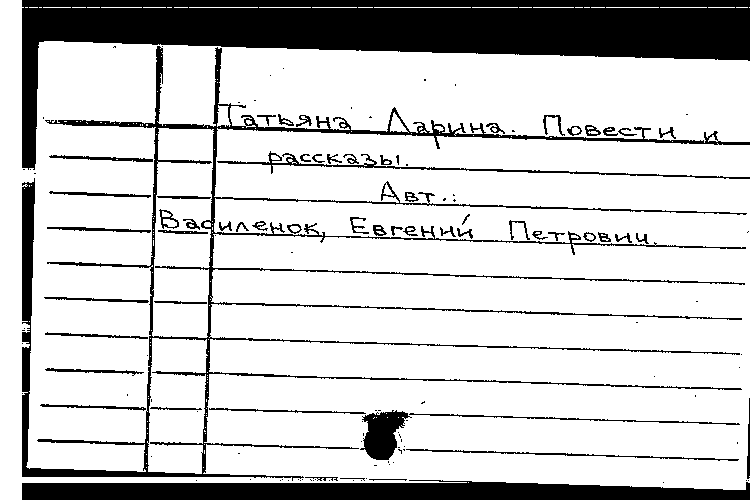 Татьяна Ларина. Повести и
рассказы.
Авт.:
Василенок, Евгений Петрович.